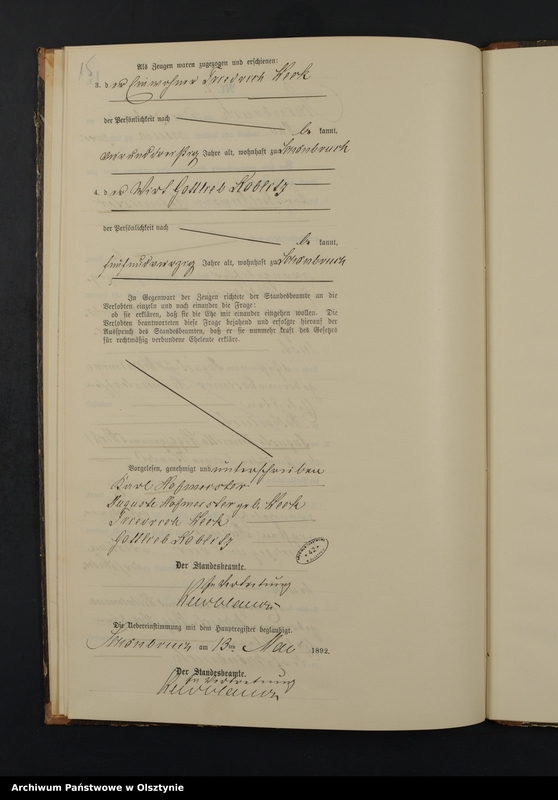 15
Als Zeugen waren zugezogen und erschienen:
3. d er Einwohner Friedrich Keck
der Persönlichkeit nach
be kannt,
vierunddreißig Jahre alt, wohnhaft zu Schönbruch
4. d er Wirt Gottlieb Koblitz
der Persönlichkeit nach
be kannt,
fünfundvierzig Jahre alt, wohnhaft zu Schönbruch
In Gegenwart der Zeugen richtete der Standesbeamte an die
Verlobten einzeln und nach einander die Frage:
ob sie erklären, daß sie die Ehe mit einander eingehen wollen. Die
Verlobten beantworteten diese Frage bejahend und erfolgte hierauf der
Ausspruch des Standesbeamten, daß er sie nunmehr kraft des Gesetzes
für rechtmäßig verbundene Eheleute erkläre.
Vorgelesen, genehmigt und unterschrieben
Karl Hofmeister
Auguste Hofmeister geb. Keck
Friedrich Keck
Gottlieb Koblitz
Der Standesbeamte.
In Vertretung
Die Uebereinstimmung mit dem Hauptregister beglaubigt.
Schönbruch am 13ten Mai 1892.
Der Standesbeamte.
In Vertretung
Archiwum Państwowe w Olsztynie